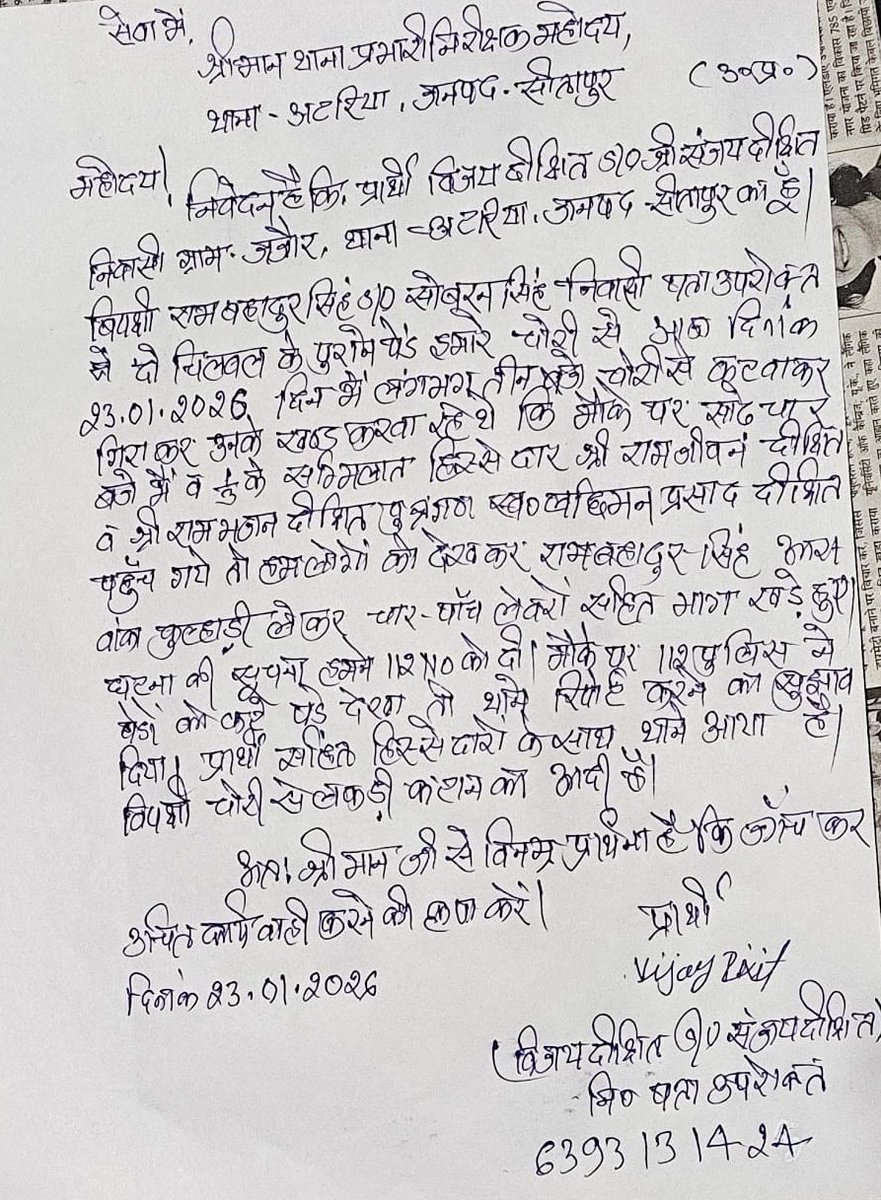 सेवा में,
श्रीमान थाना प्रभारी निरीक्षक महोदय,
थाना - अटरिया, जनपद - सीतापुर (उ०प्र०)
महोदय!
निवेदन है कि, प्रार्थी विजय दीक्षित S/O श्री संजय दीक्षित
निवासी ग्राम - जजौर, थाना - अटरिया, जनपद - सीतापुर का हूँ।
विपक्षी रामबहादुर सिंह S/O सोबरन सिंह निवासी पता उपरोक्त
ने दो चिलवल के पुराने पेड हमारे चोरी से आज दिनांक
23.01.2026 दिन में लगभग तीन बजे चोरी से कटवाकर
गिरा कर उनके खण्ड करवा रहे थे कि मौके पर साढे चार
बजे मैं व के सम्मिलात हिस्सेदार श्री रामजीवन दीक्षित
व श्री रामभजन दीक्षित पुत्रगण स्व० लछिमन प्रसाद दीक्षित
पहुँच गये तो हमलोगों को देखकर रामबहादुर सिंह आरा
वांका कुल्हाड़ी लेकर चार-पाँच लेवरों सहित भाग खड़े हुए।
घटना की सूचना हमने 112 no को दी। मौके पर 112 पुलिस ने
पेडों को कटे पडे देखा तो थाने रिपोर्ट करने का सुझाव
दिया। प्रार्थी सहित हिस्सेदारों के साथ थाने आया है।
विपक्षी चोरी से लकड़ी कटान का आदी है।
अतः श्रीमान जी से विनम्र प्रार्थना है कि जाँच कर
उचित कार्यवाही करने की कृपा करें।
प्रार्थी
Vijay Dixit
दिनांक 23.01.2026
(विजय दीक्षित S/O संजय दीक्षित)
नि० पता उपरोक्त
6393131424